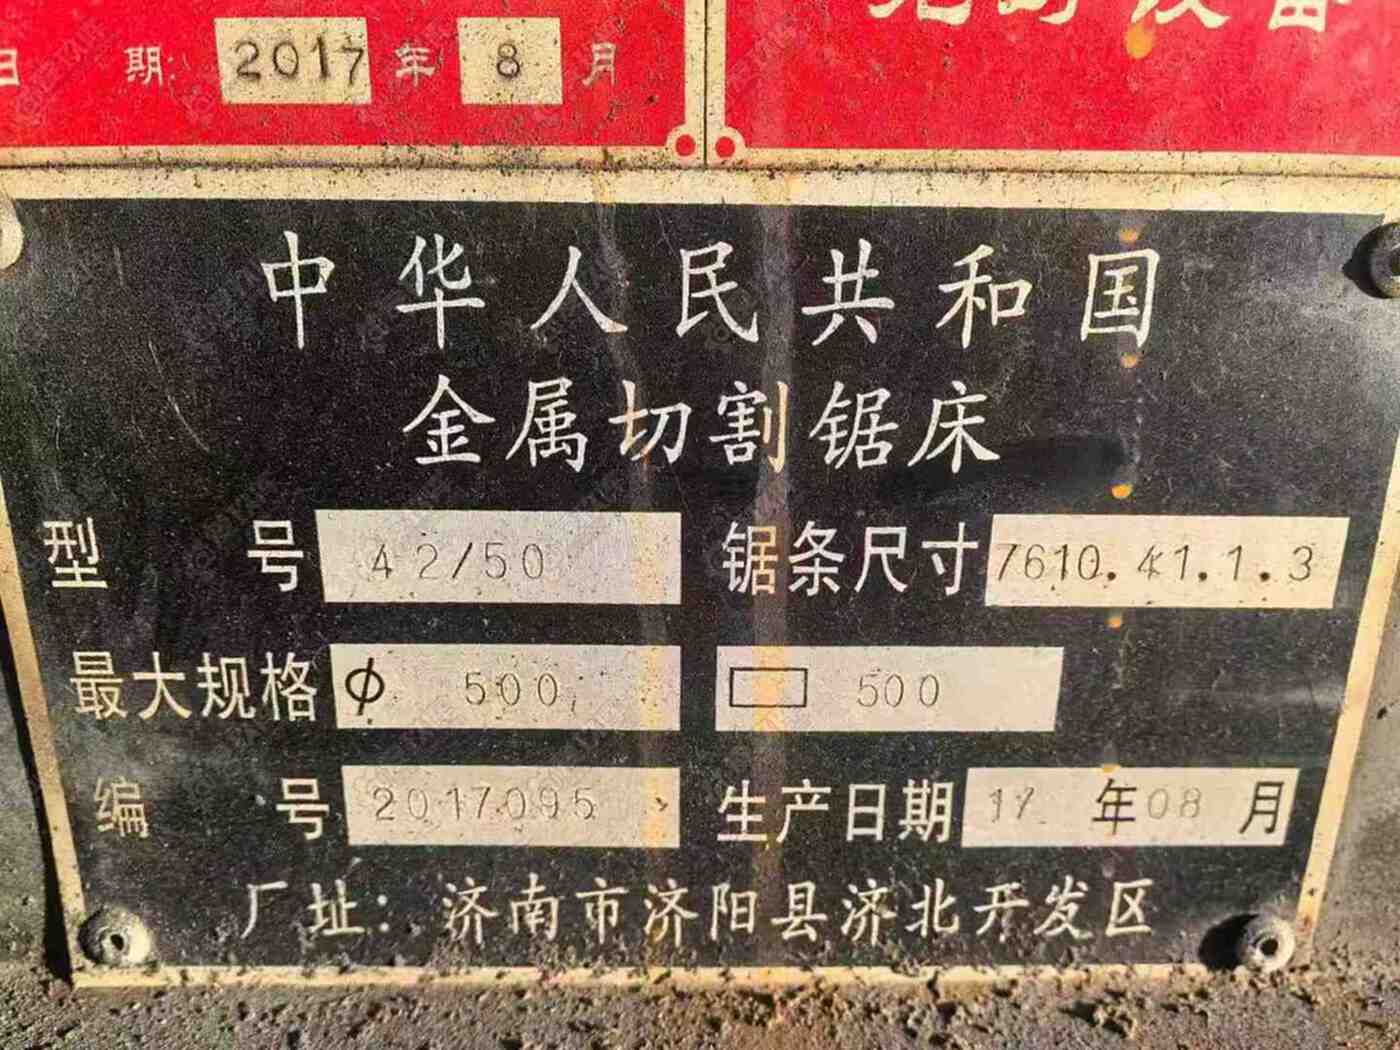 日 期: 2017 年 8 月
设备
中华人民共和国
金属切割锯床
型 号 42/50 锯条尺寸 7610.41.1.3
最大规格 ф 500 500
编 号 2017095 生产日期 17 年 08 月
厂址: 济南市济阳县济北开发区